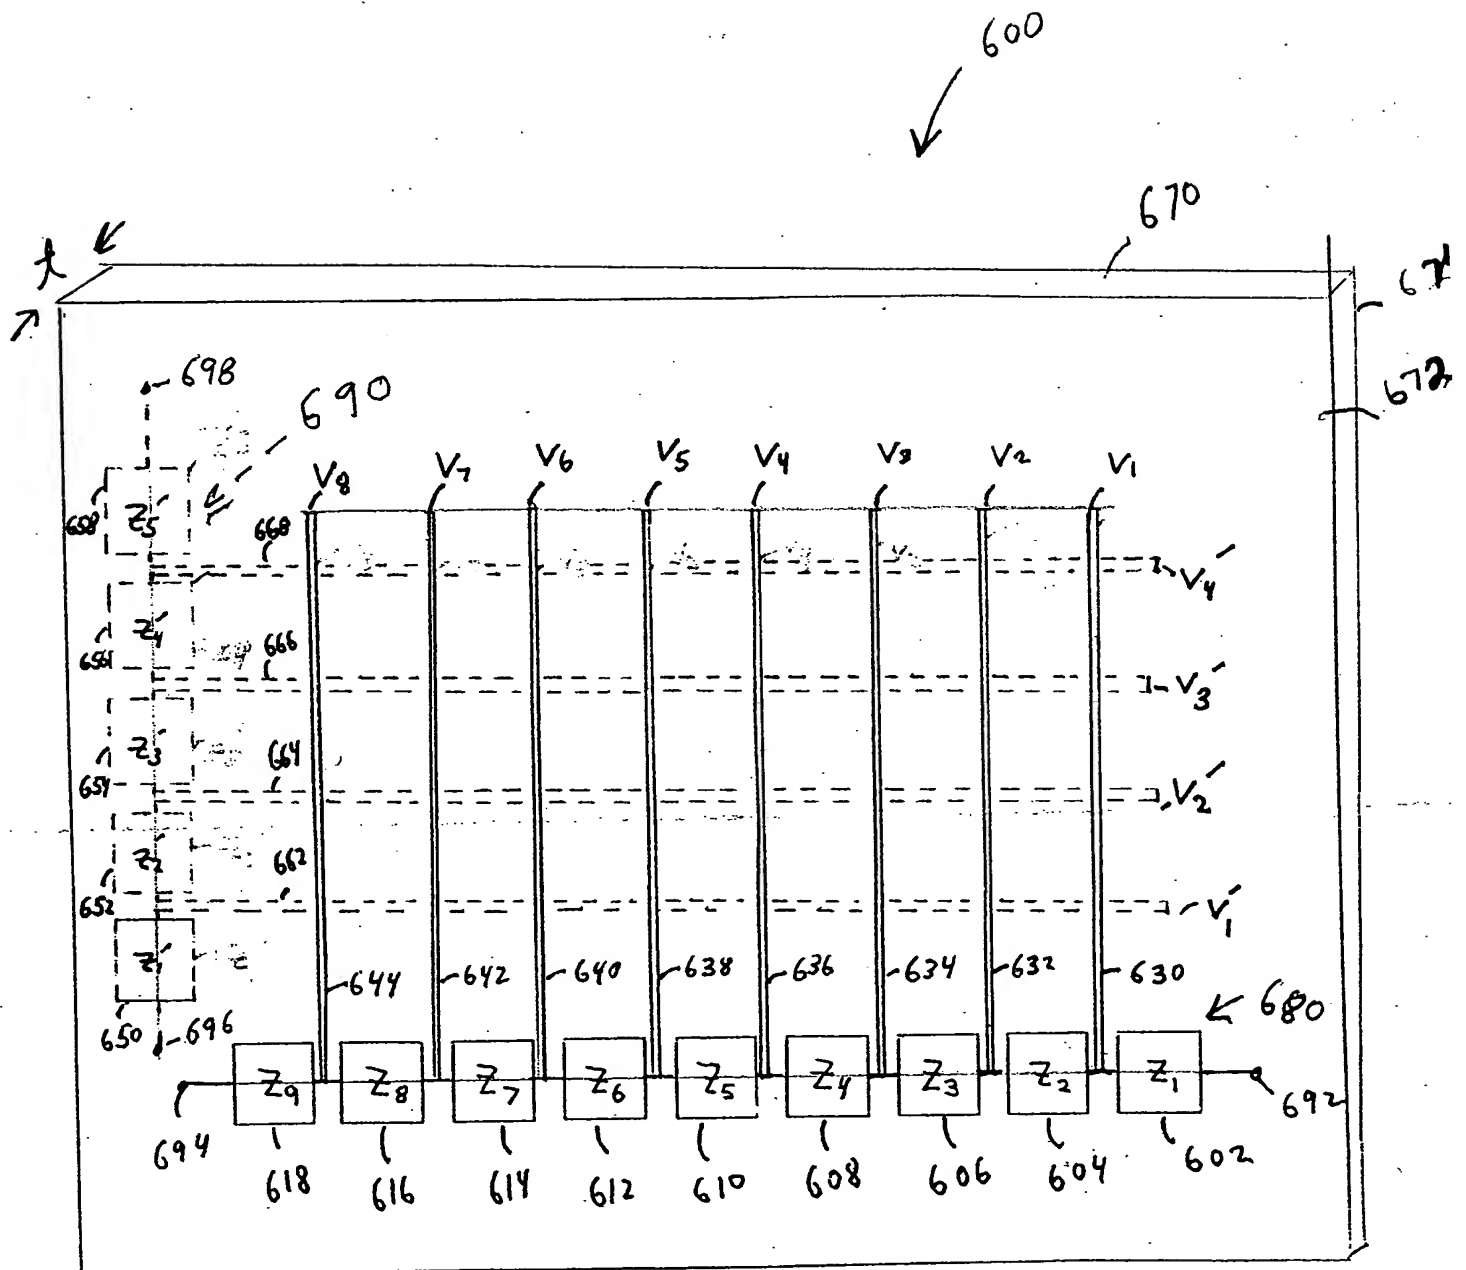 600
670
t
674
672
698
690
V8 V7 V6 V5 V4 V3 V2 V1
658 Z5´ 668
V4´
656 Z4´ 666
V3´
654 Z3´ 664
V2´
652 Z2´ 662
V1´
Z1´
644 642 640 638 636 634 632 630
650 696
680
Z9 Z8 Z7 Z6 Z5 Z4 Z3 Z2 Z1
694 692
618 616 614 612 610 608 606 604 602